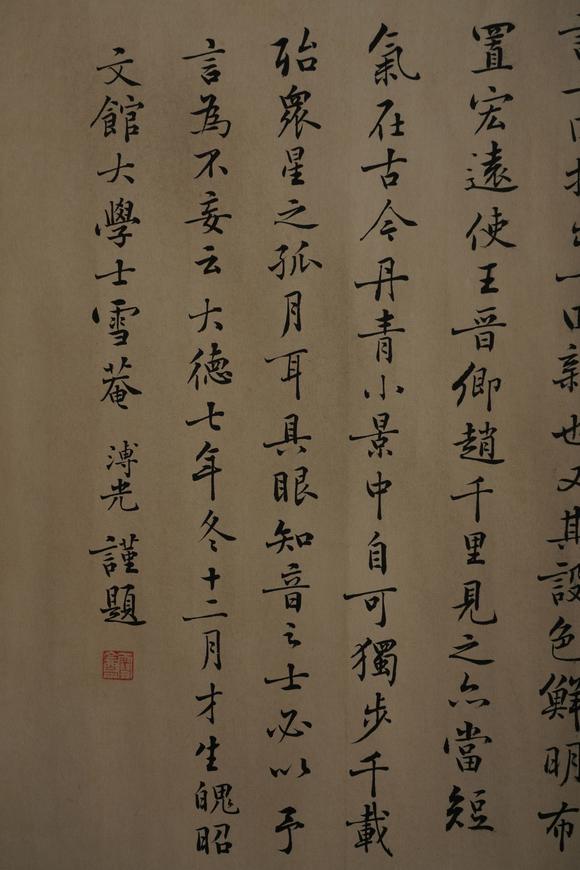 一回拈出一回新也又其設色鮮明布
置宏遠使王晋卿趙千里見之亦當短
氣在古今丹青小景中自可獨步千載
殆衆星之孤月耳具眼知音之士必以予
言為不妄云大德七年冬十二月才生魄昭
文館大學士雪菴溥光謹題